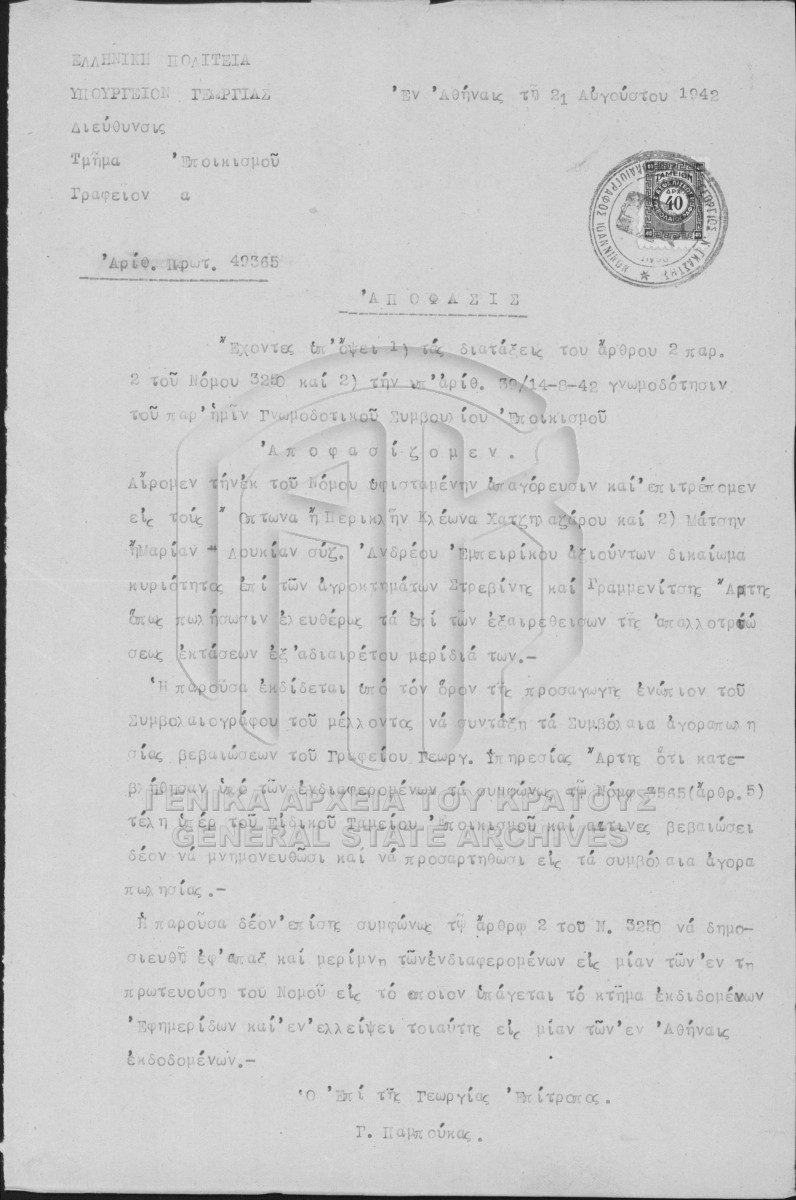 ΕΛΛΗΝΙΚΗ ΠΟΛΙΤΕΙΑ
ΥΠΟΥΡΓΕΙΟΝ ΓΕΩΡΓΙΑΣ
Ἐν Ἀθήναις τῇ 21 Αὐγούστου 1942
Διεύθυνσις
Τμῆμα Ἐποικισμοῦ
Γραφεῖον α
ΤΑΜΕΙΟΝ
ΔΡΧ
40
Ἀριθ. Πρωτ. 49365
ἈΠΟΦΑΣΙΣ
Ἔχοντες ὑπ' ὄψει 1) τάς διατάξεις του ἄρθρου 2 παρ.
2 τοῦ Νόμου 3250 καί 2) τήν ὑπ' ἀρίθ. 39/14-8-42 γνωμοδότησιν
τοῦ παρ' ἡμῖν Γνωμοδοτικοῦ Συμβουλίου Ἐποικισμοῦ
Ἀποφασίζομεν.
Αἴρομεν τήνἐκ τοῦ Νόμου ὑφισταμένην ἀπαγόρευσιν καί ἐπιτρέπομεν
εἰς τούς " Οπτωνα ἤ Περικλῆν Κλέωνα Χατζηλαζάρου καί 2) Μάτσην
ἤΜαρίαν - Λουκίαν σύζ. Ἀνδρέου Ἐμπειρίκου ἀξιούντων δικαίωμα
κυριότητος ἐπί τῶν ἀγροκτημάτων Στρεβίνης καί Γραμμενίτσης Ἄρτης
ὅπως πωλήσωσιν ἐλευθέρως τά ἐπί τῶν ἐξαιρεθεισων τῆς ἀπαλλοτριώ
σεως ἐκτάσεων ἐξ ἀδιαιρέτου μερίδιά των.-
Ἡ παροῦσα ἐκδίδεται ὑπό τόν ὅρον τῆς προσαγωγης ἐνώπιον τοῦ
Συμβολαιογράφου τοῦ μέλλοντος νά συντάξῃ τά Συμβόλαια ἀγοραπωλη
σίας βεβαιώσεων τοῦ Γραφείου Γεωργ. Ὑπηρεσίας Ἄρτης ὅτι κατε-
βλήθησαν ὑπό τῶν ἐνδιαφερομένων τά συμφώνως τῷ Νόμῳ 5565(ἄρθρ.5)
τέλη ὑπέρ τοῦ Εἰδικοῦ Ταμείου Ἐποικισμοῦ καί αιτινες βεβαιώσει
δέον νά μνημονευθῶσι καί νά προσαρτηθῶσι εἰς τά συμβόλαια ἀγορα
πωλησίας.-
Ἡ παροῦσα δέον ἐπίσης συμφώνως τῷ ἄρθρῳ 2 τοῦ Ν. 3250 νά δημο-
σιευθῇ ἐφ' ἅπαξ καί μερίμνη τῶνἐνδιαφερομένων εἰς μίαν τῶν ἐν τη
πρωτευούσῃ τοῦ Νομοῦ εἰς τό οποιον ὑπάγεται τό κτῆμα ἐκδιδομένων
Ἐφημερίδων καί ἐν ἐλλείψει τοιαύτης εἰς μίαν τῶν ἐν Ἀθήναις
ἐκδοδομένων.-
Ὁ Ἐπί τῆς Γεωργίας Ἐπίτροπος.
Γ. Παμπούκας.
ΓΕΝΙΚΑ ΑΡΧΕΙΑ ΤΟΥ ΚΡΑΤΟΥΣ
GENERAL STATE ARCHIVES